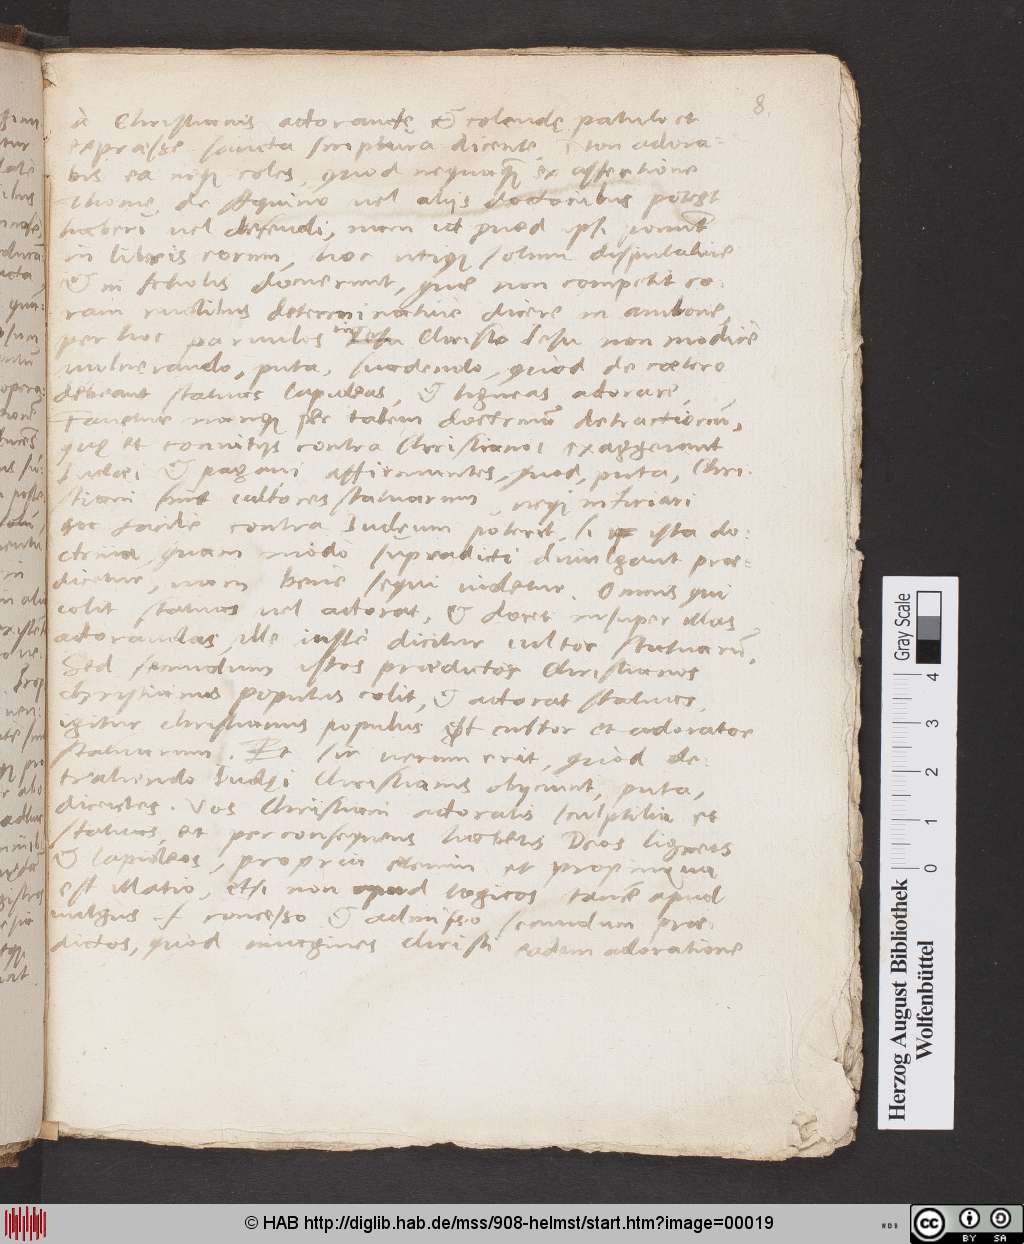 8
à Christianis adorandę & colendę patulo et
expraesse sancta scriptura dicente, non adora-
bis ea neq; coles, quod nequaq̃ ex assertione
Thomę de Aquino vel alijs doctoribus potest
haberi vel defendi, nam id quod ipsi ponũt
in libris eorum, hoc utiq; solum disputative
& in scholis docuerunt, quae non competit co-
ram rudibus determinative dicere in ambone,
per hoc parvulos in Christo Iesu non modice
vulnerando, puta, suadendo, quod de caetero
debeant statuas lapideas, & ligneas adorare,
Favetur namq; per talem doctrinã detractiorũ,
quę et convitijs contra Christianos exaggerant
Iudaei & pagani affirmantes, quod, puta, Chri-
stiani sint cultores statuarum, neq; inficiari
hoc facile contra Iudęum poterit, si ista do-
ctrina, quam modo supradicti divulgant prae-
dicetur, nam bene sequi videtur. Omnis qui
colit statuas vel adorat, & docet insuper illas
adorandas, ille iuste dicitur cultor statuarũ,
Sed secundum istos praedictos Christianos
christianus populus colit, & adorat statuas,
igitur christianus populus est cultor et adorator
statuarum. Et sic verum erit, quod de-
trahendo Iudęi Christianis obijciunt, puta,
dicentes. Vos Christiani adoratis sculptilia et
statuas, et per consequens habetis Deos ligneos
& lapideos, propria etenim et propinqua
est illatio, etsi non apud logicos, tamẽ apud
vulgus. concesso & admisso secundum prae-
dictos, quod imagines Christi eadem adoratione
Herzog August Bibliothek
Wolfenbüttel
Gray Scale
0 1 2 3 4
© HAB http://diglib.hab.de/mss/908-helmst/start.htm?image=00019
WDB
cc BY SA